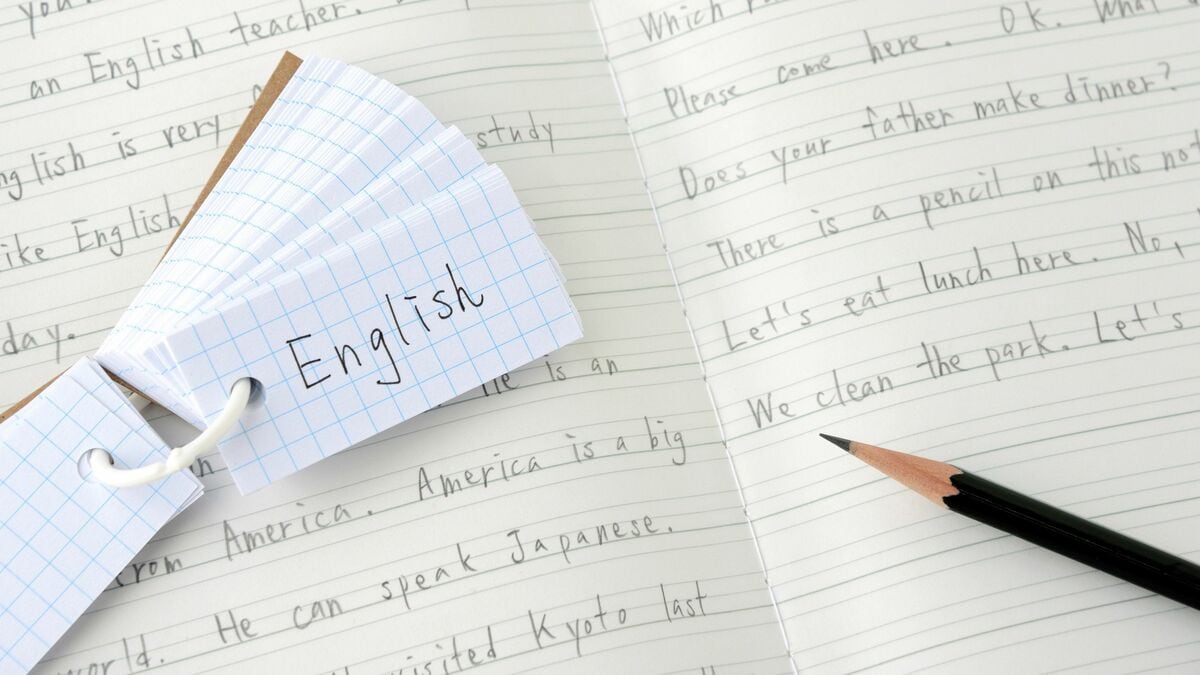 you
an English teacher.
English is very
study
like English
day.
English
He is an
in
from America. America is a big
world. He can speak Japanese.
visited Kyoto last
Which
Please come here. OK. What
Does your father make dinner?
There is a pencil on this not
Let's eat lunch here. No,
We clean the park. Let's